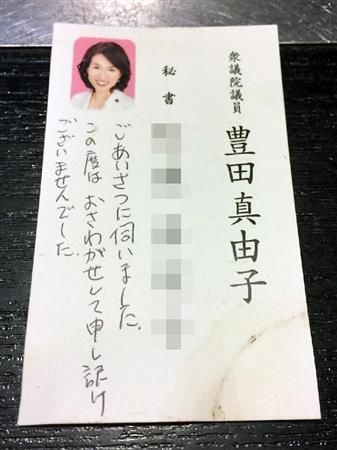 衆議院議員
豊田真由子
秘書
ごあいさつに伺いました。
この度は おさわがせして申し訳け
ございませんでした。